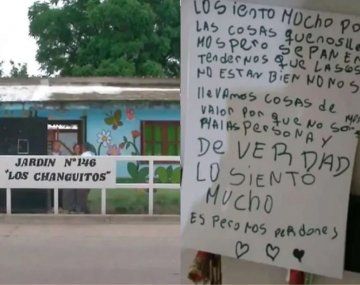 JARDIN Nº 146
"LOS CHANGUITOS"
LO SIENTO MUCHO POR
LAS COSAS QUE NOS LLE
MOS PERO SEPAN EN
TENDERNOS QUE LAS COS
NO ESTAN BIEN NO NOS
llEVAMOS COSAS DE
VALOR POR QUE NO SOMOS
MALAS PERSONA Y
DE VERDAD
LO SIENTO
MUCHO
ESPERO NOS PERDONES